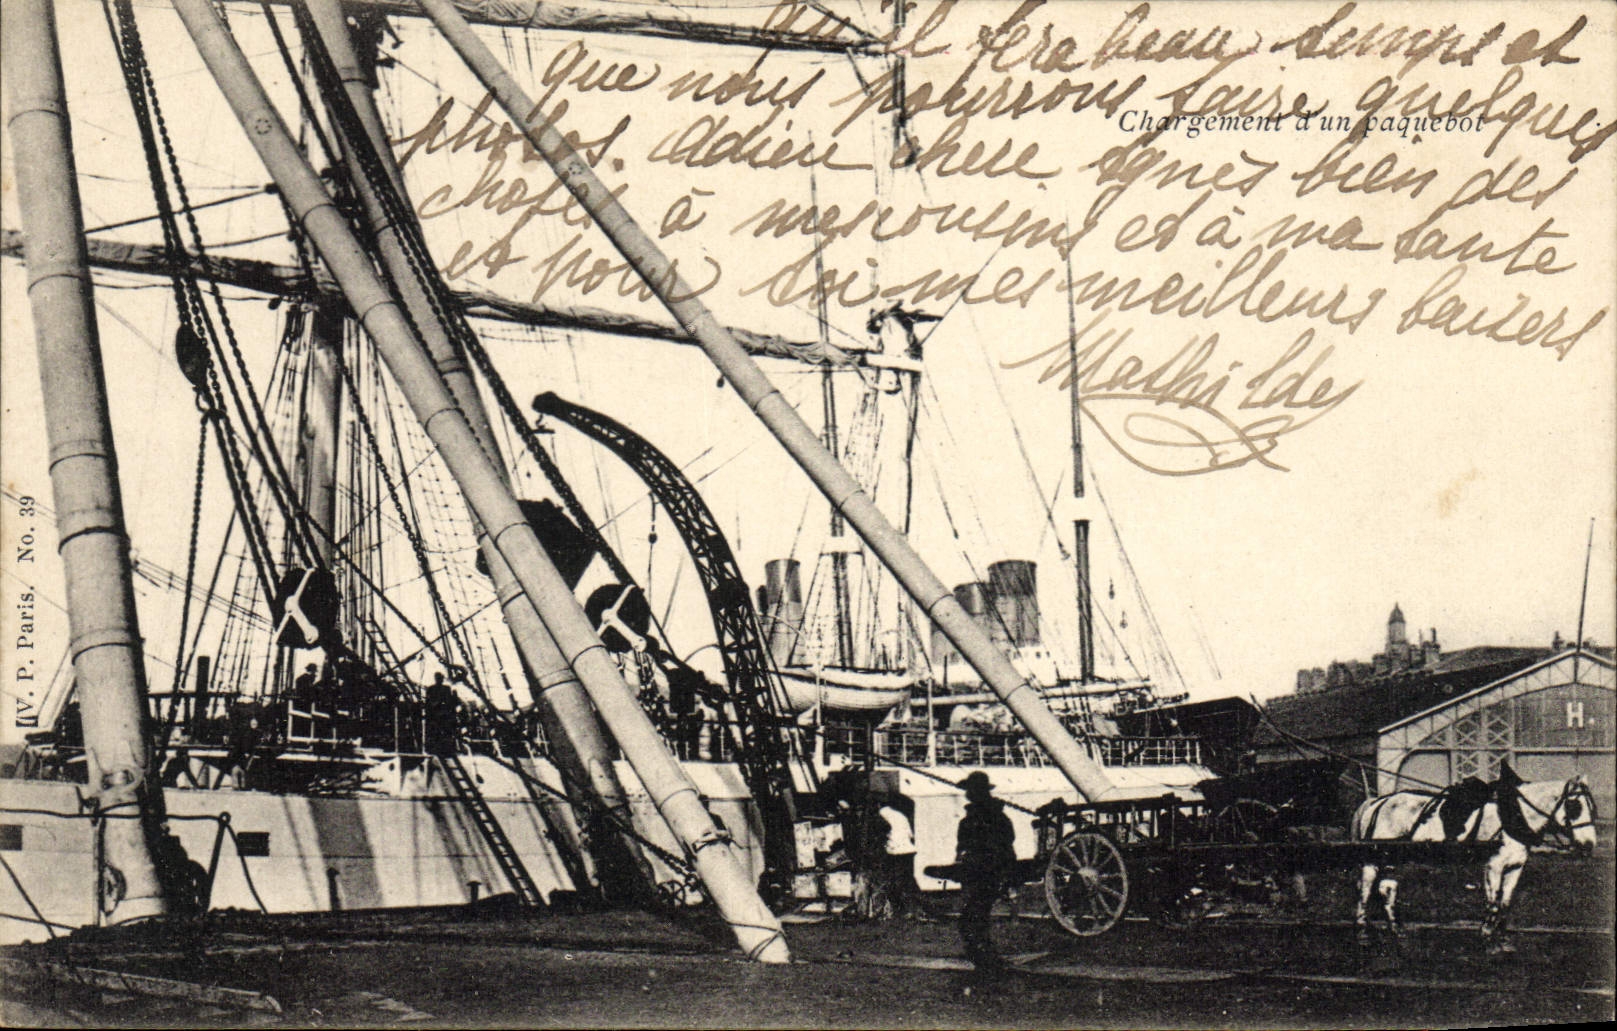 qu'il fera beau temps et
que nous pourrons faire quelques
Chargement d'un paquebot
photos. Adieu chere Agnès bien des
choses à mes cousins et à ma tante
et pour toi mes meilleurs baisers
Mathilde
[V. P. Paris. No. 39
H.